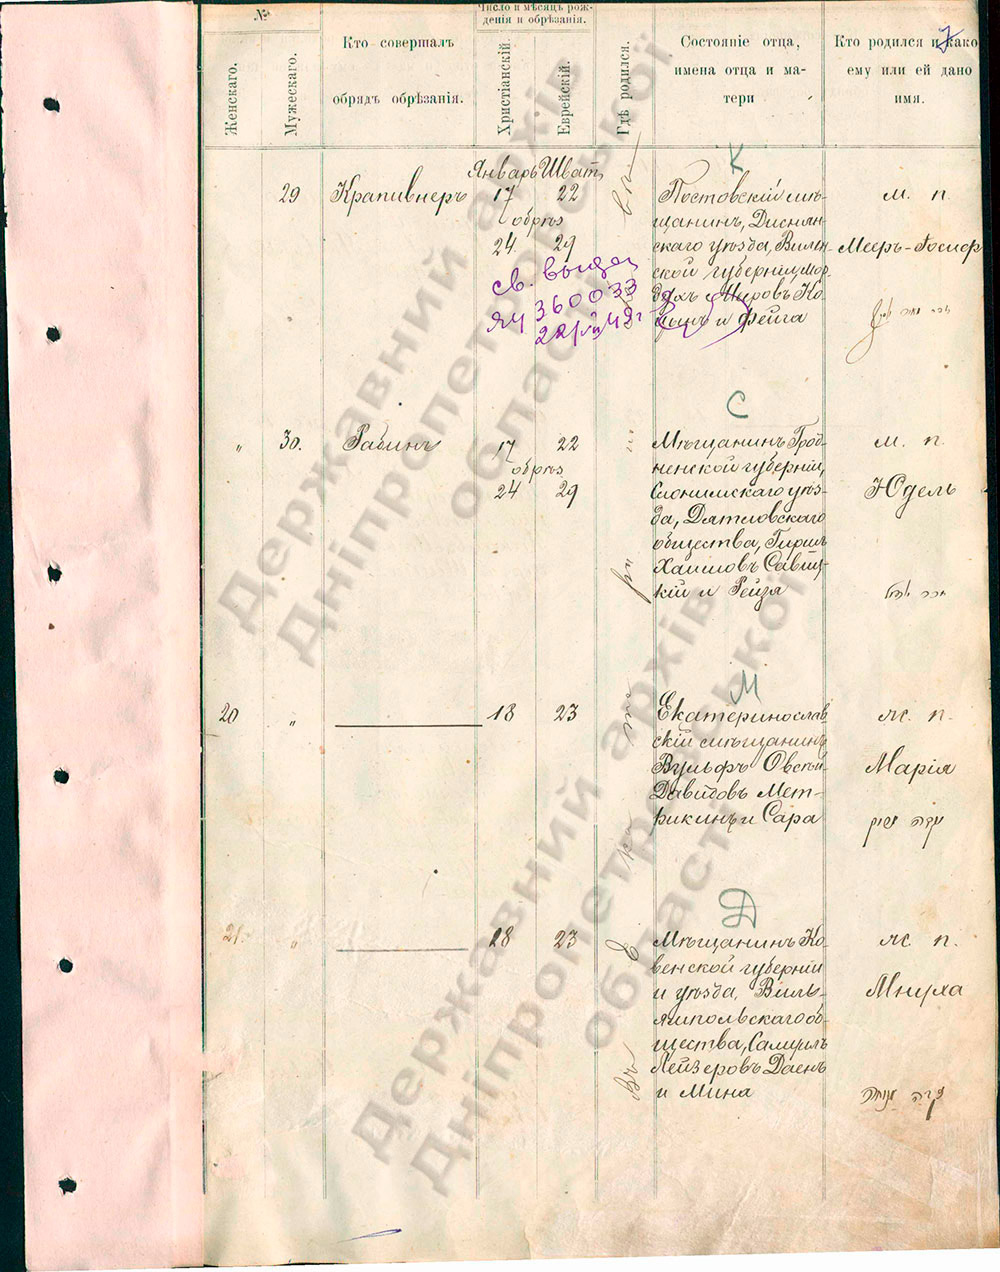 №
Женскаго.
Мужескаго.
Кто совершалъ
обрядъ обрѣзанія.
Число и мѣсяцъ рож-
денія и обрѣзанія.
Христіанскій.
Еврейскій.
Гдѣ родился.
Состояніе отца,
имена отца и ма-
тери
Кто родился и како
ему или ей дано
имя.
7
Январь Шват
К
29 Крапивнеръ 17 22
обрѣз
24 29
Постовскій мѣ-
щанинъ, Дисмян-
скаго уѣзда, Вилен-
ской губерніи, Мор-
духъ Мееровъ
и Фейга
м. п.
Мееръ-Іосиф
св. выдан
ЯЧ 360033
С
" 30. Рабинъ 17 22
обрѣз
24 29
Мѣщанинъ Грод-
ненской губерніи,
Слонимскаго уѣз-
да, Дятловскаго
общества, Гирш
Хаимовъ Савиц-
кій и Рейзя
м. п.
Юдель
М
20 " 18 23
Екатеринослав
скій мѣщанинъ
Вульфъ Овсѣй
Давидовъ Мет-
рикинъ и Сара
ж. п.
Марія
Д
21. " 18 23
Мѣщанинъ Ко-
венской губерніи
и уѣзда, Виль-
ямпольскаго об-
щества, Самуилъ
Лейзеровъ Даенъ
и Мина
ж. п.
Мнуха
Въ
Державний архів
Дніпропетровської
області
Державний архів
Дніпропетровської
області